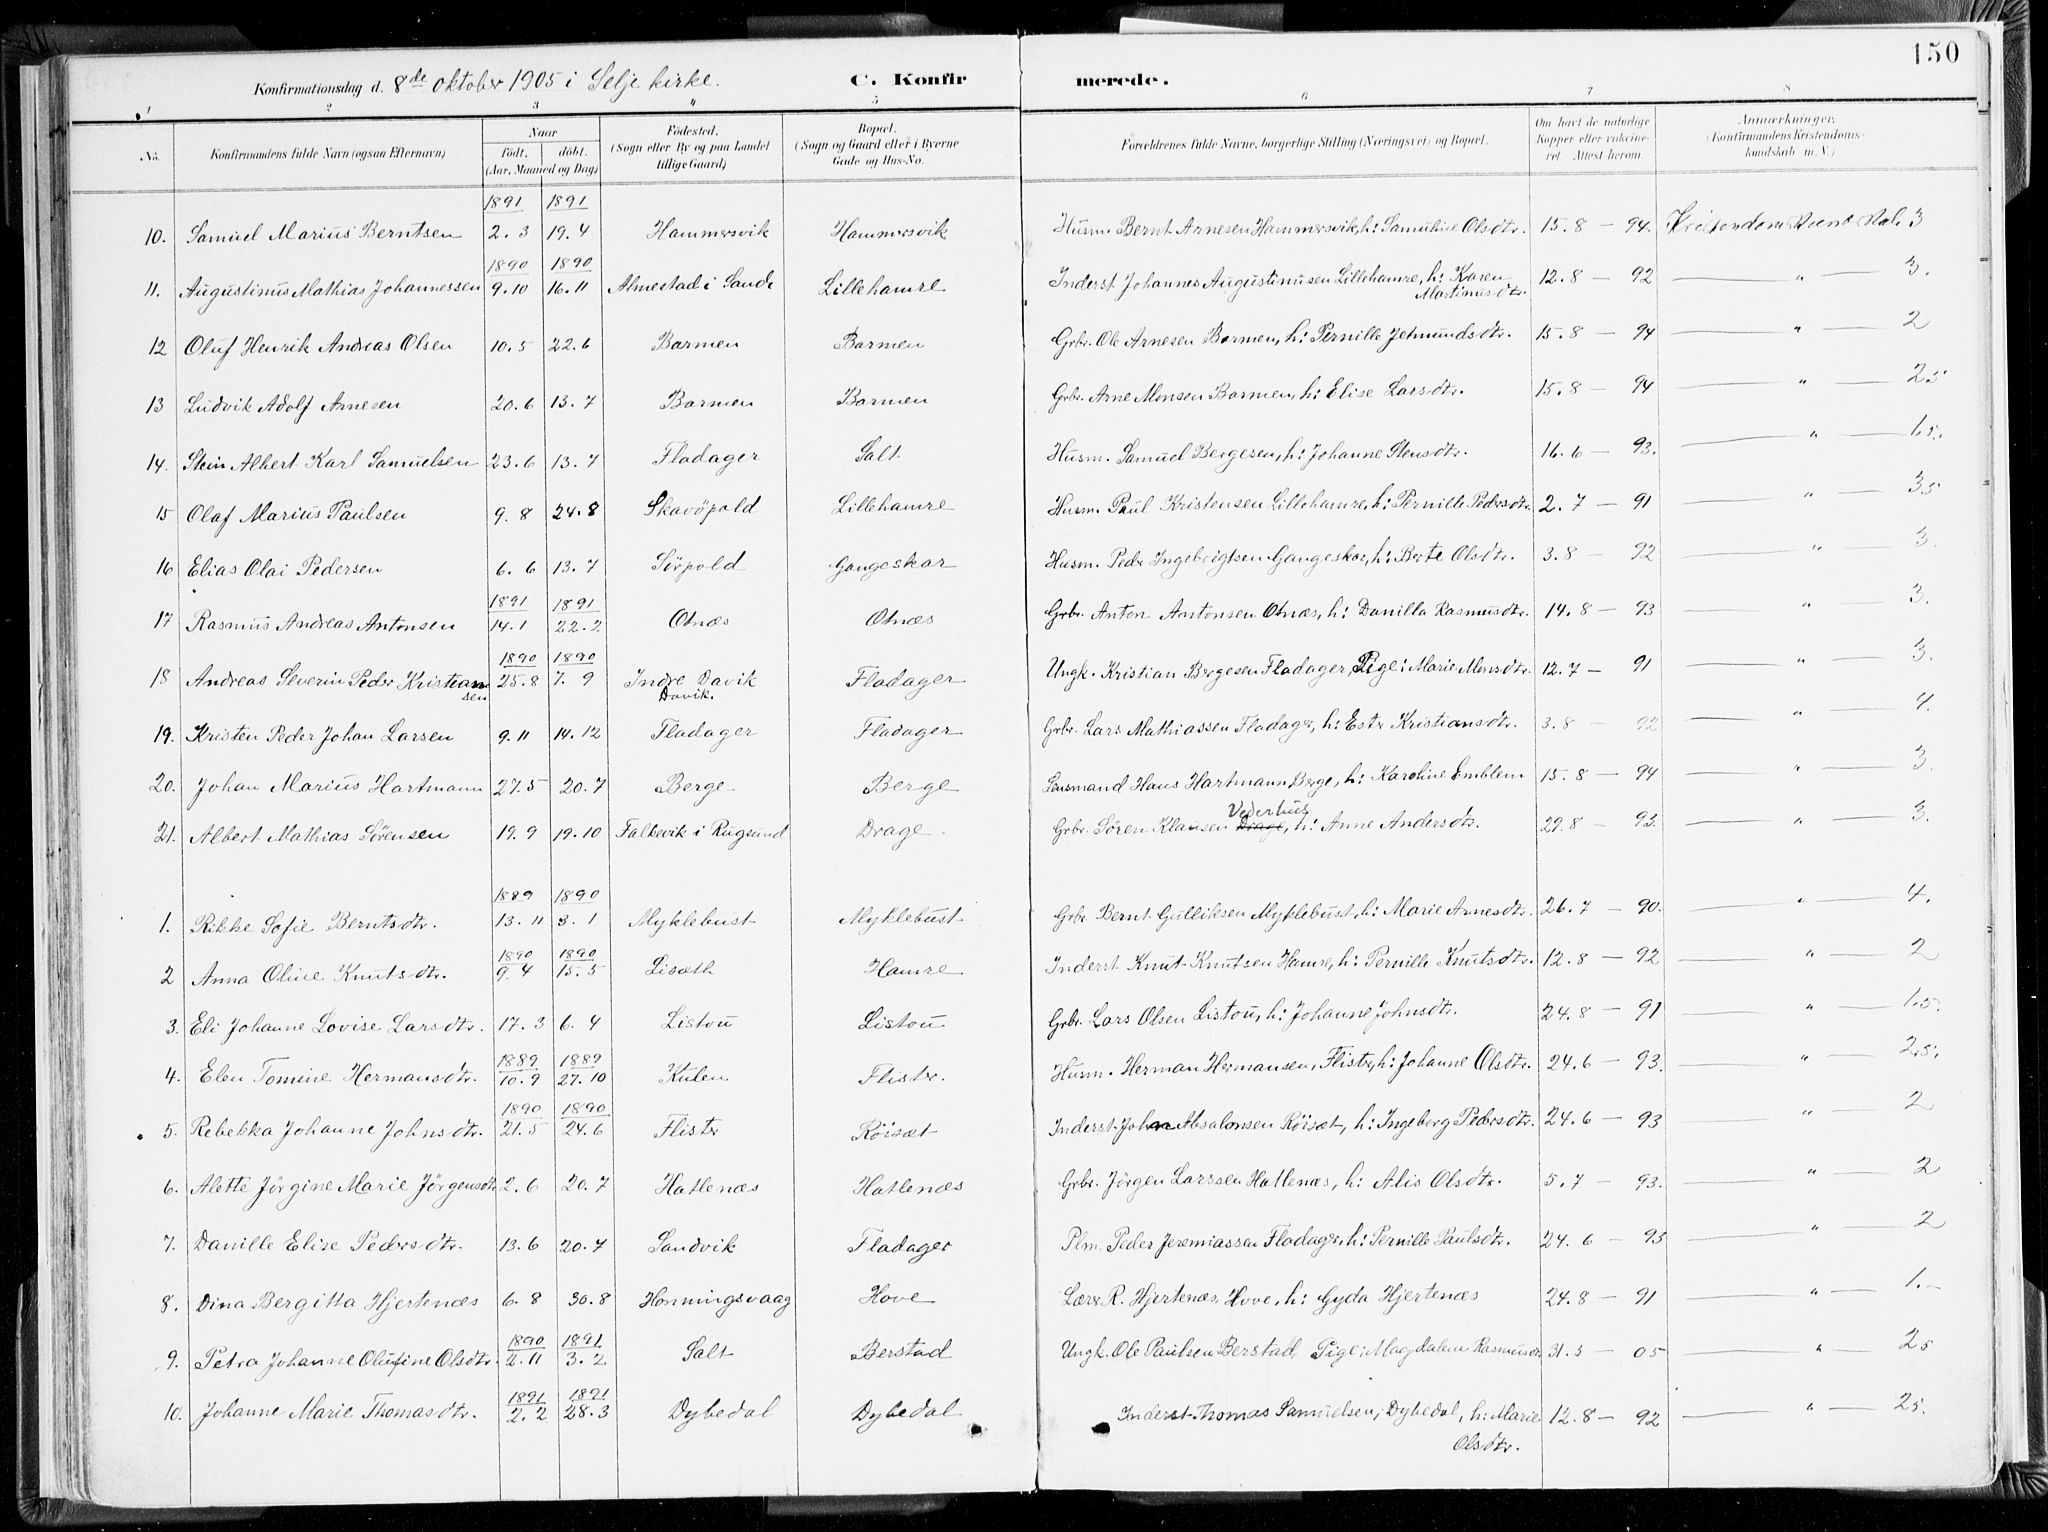 150
Konfirmationsdag d. 8de oktober 1905 i Selje kirke. C. Konfirmerede.
1 2 3 4 5 6 7 8
No. Konfirmandens fulde Navn (ogsaa Efternavn) Naar Født. døbt. (Aar, Maaned og Dag) Fødested. (Sogn eller By og paa Landet tillige Gaard) Bopæl. (Sogn og Gaard eller i Byerne Gade og Hus-No. Forældrenes fulde Navne, borgerlige Stilling (Næringsvei) og Bopæl. Om havt de naturlige Kopper eller vakcineret. Attest herom. Anmærkninger. (Konfirmandens Kristendomskundskab m. V.)
1891 1891
10. Samuel Marius Berntsen 2.3 19.4 Hammersvik Hammersvik Husm. Bernt Arnesen Hammersvik, h: Samuline Olsdtr. 15.8 — 94. 3
1890 1890
11. Augustinus Mathias Johannessen 9.10 16.11 Almestad i Sande Lillehamre Inderst Johannes Augustinusen Lillehamre, h: Karen Martinusdtr. 12.8 — 92 " 3.
12 Oluf Henrik Andreas Olsen 10.5 22.6 Barmen Barmen Grbr. Ole Arnesen Barmen, h: Pernille Jetmundsdtr. 15.8 — 94 " 2
13 Ludvik Adolf Arnesen 20.6 13.7 Barmen Barmen Grbr. Arne Monsen Barmen, h: Elise Larsdtr. 15.8 — 94 " 2.5
14. Stein Albert Karl Samuelsen 23.6 13.7 Fladager Salt Husm. Samuel Bergesen, h: Johanne Stensdtr. 16.6 — 93. " 1.5.
15 Olaf Marius Paulsen 9.8 24.8 Skavøpold Lillehamre Husm. Paul Kristensen Lillehamre, h: Pernille Pedersdtr. 2.7 — 91 " 3.5
16 Elias Olai Pedersen 6.6 13.7 Sørpold Gangeskar Husm. Peder Ingebrigtsen Gangeskar, h: Berte Olsdtr. 3.8 — 92 " 3.
1891 1891
17 Rasmus Andreas Antonsen 14.1 22.2 Otnæs Otnæs Grbr. Anton Antonsen Otnæs, h: Danilla Rasmusdtr. 14.8 — 93 " 3.
1890 1890
18 Andreas Severin Peder Kristiansen 25.8 7.9 Indre Davik Davik. Fladager Ungk. Kristian Bergesen Fladager, Pige: Marie Monsdtr. 12.7 — 91 " 3.
19. Kristen Peder Johan Larsen 9.11 14.12 Fladager Fladager Grbr. Lars Mathiassen Fladager, h: Ester Kristiansdtr. 3.8 — 92 " 4.
20. Johan Marius Hartmann 27.5 20.7 Berge Berge Lensmand Hans Hartmann Berge, h: Karoline Emblem 15.8 — 94 " 3.
21. Albert Mathias Sørensen 19.9 19.10 Falkevik i Rugsund Drage. Grbr. Sören Klausen Drage Vederhus, h: Anne Andersdtr. 29.8 — 93. " 3.
1889 1890
1. Rikke Sofie Berntsdtr. 13.11 3.1 Myklebust Myklebust Grbr. Bernt Gulliksen Myklebust, h: Marie Arnesdtr. 26.7 — 90. " 4.
1890 1890
2 Anna Oline Knutsdtr. 9.4 15.5 Lisæth Hamre Inderst Knut Knutsen Hamre, h: Pernille Knutsdtr. 12.8 — 92 " 2
3. Eli Johanne Lovise Larsdtr. 17.3 6.4 Listou Listou Grbr. Lars Olsen Listou, h: Johanne Johnsdtr. 24.8 — 91 " 1.5.
1889 1889
4. Elen Tomine Hermansdtr. 10.9 27.10 Kulen Flister. Husm. Herman Hermansen, Flister, h: Johanne Olsdtr. 24.6 — 93. " 2.5.
1890 1890
5. Rebekka Johanne Johnsdtr. 21.5 24.6 Flister Röisæt Inderst John Absalonsen Röisæt, h: Ingeborg Pedersdtr. 24.6 — 93 " 2
6. Alette Jörgine Marie Jörgensdtr 2.6 20.7 Hatlenæs Hatlenæs Grbr. Jörgen Larssen Hatlenæs, h: Alis Olsdtr. 5.7 — 93. " 2
7. Danille Elise Pedersdtr. 13.6 20.7 Sandvik Fladager Plm. Peder Jeremiassen Fladager, h: Pernille Paulsdtr. 24.6 — 93 " 2
8. Dina Bergitta Hjertenæs 6.8 30.8 Honningsvaag Hove Lærer R. Hjertenæs, Hove, h: Gyda Hjertenæs 24.8 — 91 " 1.
1890 1891
9. Petra Johanne Olufine Olsdtr. 2.11 3.2 Salt Berstad Ungk. Ole Paulsen Berstad, Pige: Magdalene Rasmusdtr 31.5 — 05 " 2.5
1891 1891
10. Johanne Marie Thomasdtr. 2.2 28.3 Dybedal Dybedal Inderst Thomas Samuelsen, Dybedal, h: Marie Olsdtr. 12.8 — 92 " 2.5.